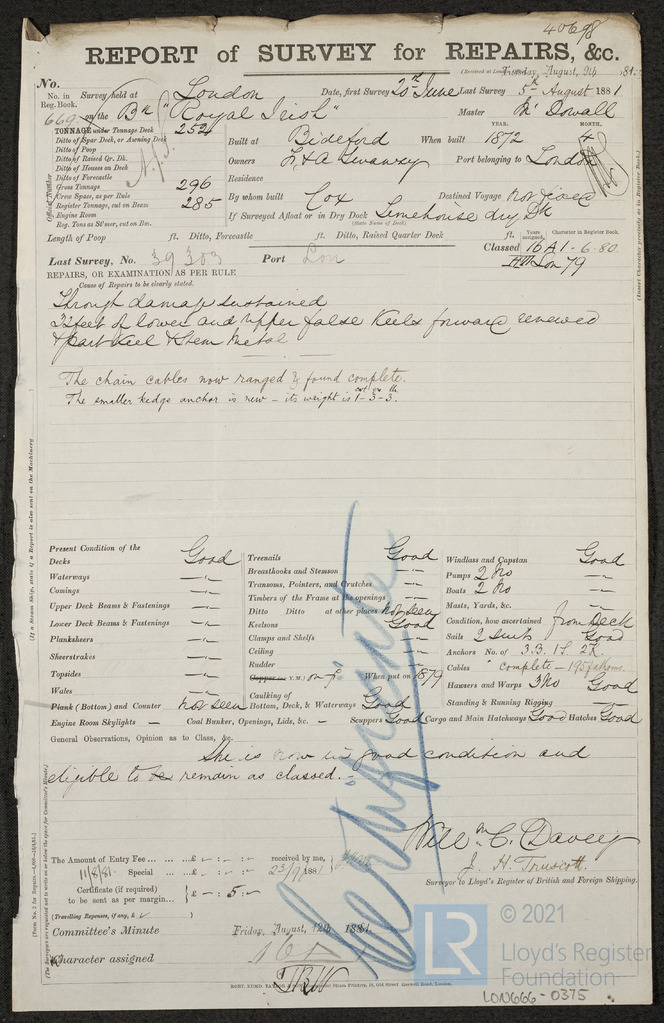 40698
REPORT of SURVEY for REPAIRS, &c.
(Received at London Office Tuesday, August, 9th 1881.
No.
No. in Reg. Book. Survey held at London Date, first Survey 20th June Last Survey 5th August 1881
669 on the Bn "Royal Irish" Master McDowall
TONNAGE under Tonnage Deck 252
Ditto of Spar Deck, or Awning Deck
Ditto of Poop
Ditto of Raised Qr. Dk.
Ditto of Houses on Deck
Ditto of Forecastle
Gross Tonnage 296
Crew Space, as per Rule
Register Tonnage, cut on Beam 285
Engine Room
Reg. Tons as St'mer, cut on Bm.
Official Number
Built at Bideford When built YEAR. 1872 MONTH. 4
Owners Port belonging to London
Residence
By whom built Cox Destined Voyage not fixed
If Surveyed Afloat or in Dry Dock Limehouse dry Dk
(State Name of Dock.)
Length of Poop ft. Ditto, Forecastle ft. Ditto, Raised Quarter Deck ft.
Years assigned. Character in Register Book.
Last Survey, No. 39303 Port Lon
Classed 16 A1 - 6.80
Lon 79
REPAIRS, OR EXAMINATION AS PER RULE
Cause of Repairs to be clearly stated.
Through damage sustained
feet of lower and upper false Keels forward renewed
& part Keel & Stem Metal
The chain cables now ranged & found complete.
The smaller kedge anchor is new - its weight is cwt qr lb 1-3-3.
Present Condition of the
Decks Good
Waterways
Comings
Upper Deck Beams & Fastenings
Lower Deck Beams & Fastenings
Planksheers
Sheerstrakes
Topsides
Wales
Plank (Bottom) and Counter not seen
Treenails Good
Breasthooks and Stemson
Transoms, Pointers, and Crutches
Timbers of the Frame at the openings
Ditto Ditto at other places not seen
Keelsons Good
Clamps and Shelfs
Ceiling
Rudder
Copper (or Y.M.) on f When put on 1879
Caulking of Bottom, Deck, & Waterways Good
Windlass and Capstan Good
Pumps 2 No
Boats 2 No
Masts, Yards, &c.
Condition, how ascertained from deck
Sails 2 Suits Good
Anchors No. of 3.B. 1S 2K.
Cables " complete - 195 fathoms
Hawsers and Warps 3 No Good
Standing & Running Rigging
Engine Room Skylights - Coal Bunker, Openings, Lids, &c. - Scuppers Good Cargo and Main Hatchways Good Hatches Good
General Observations, Opinion as to Class, &c.
She is now in good condition and
eligible to be remain as classed. -
Will m C. Davey
J. H. Truscott.
Surveyor to Lloyd's Register of British and Foreign Shipping.
The Amount of Entry Fee ... £ - : - : - received by me,
11/8/81. Special ... £ - : - : - 23/9/1881
Certificate (if required) to be sent as per margin £ - : 5 : -
(Travelling Expenses, if any, £
Committee's Minute Friday, August, 12th 1881.
Character assigned
(If a Steam Ship, state if a Report is also sent on the Machinery
(Insert Character precisely as in Register Book.)
© 2021
LR Lloyd's Register Foundation
LON666-0375